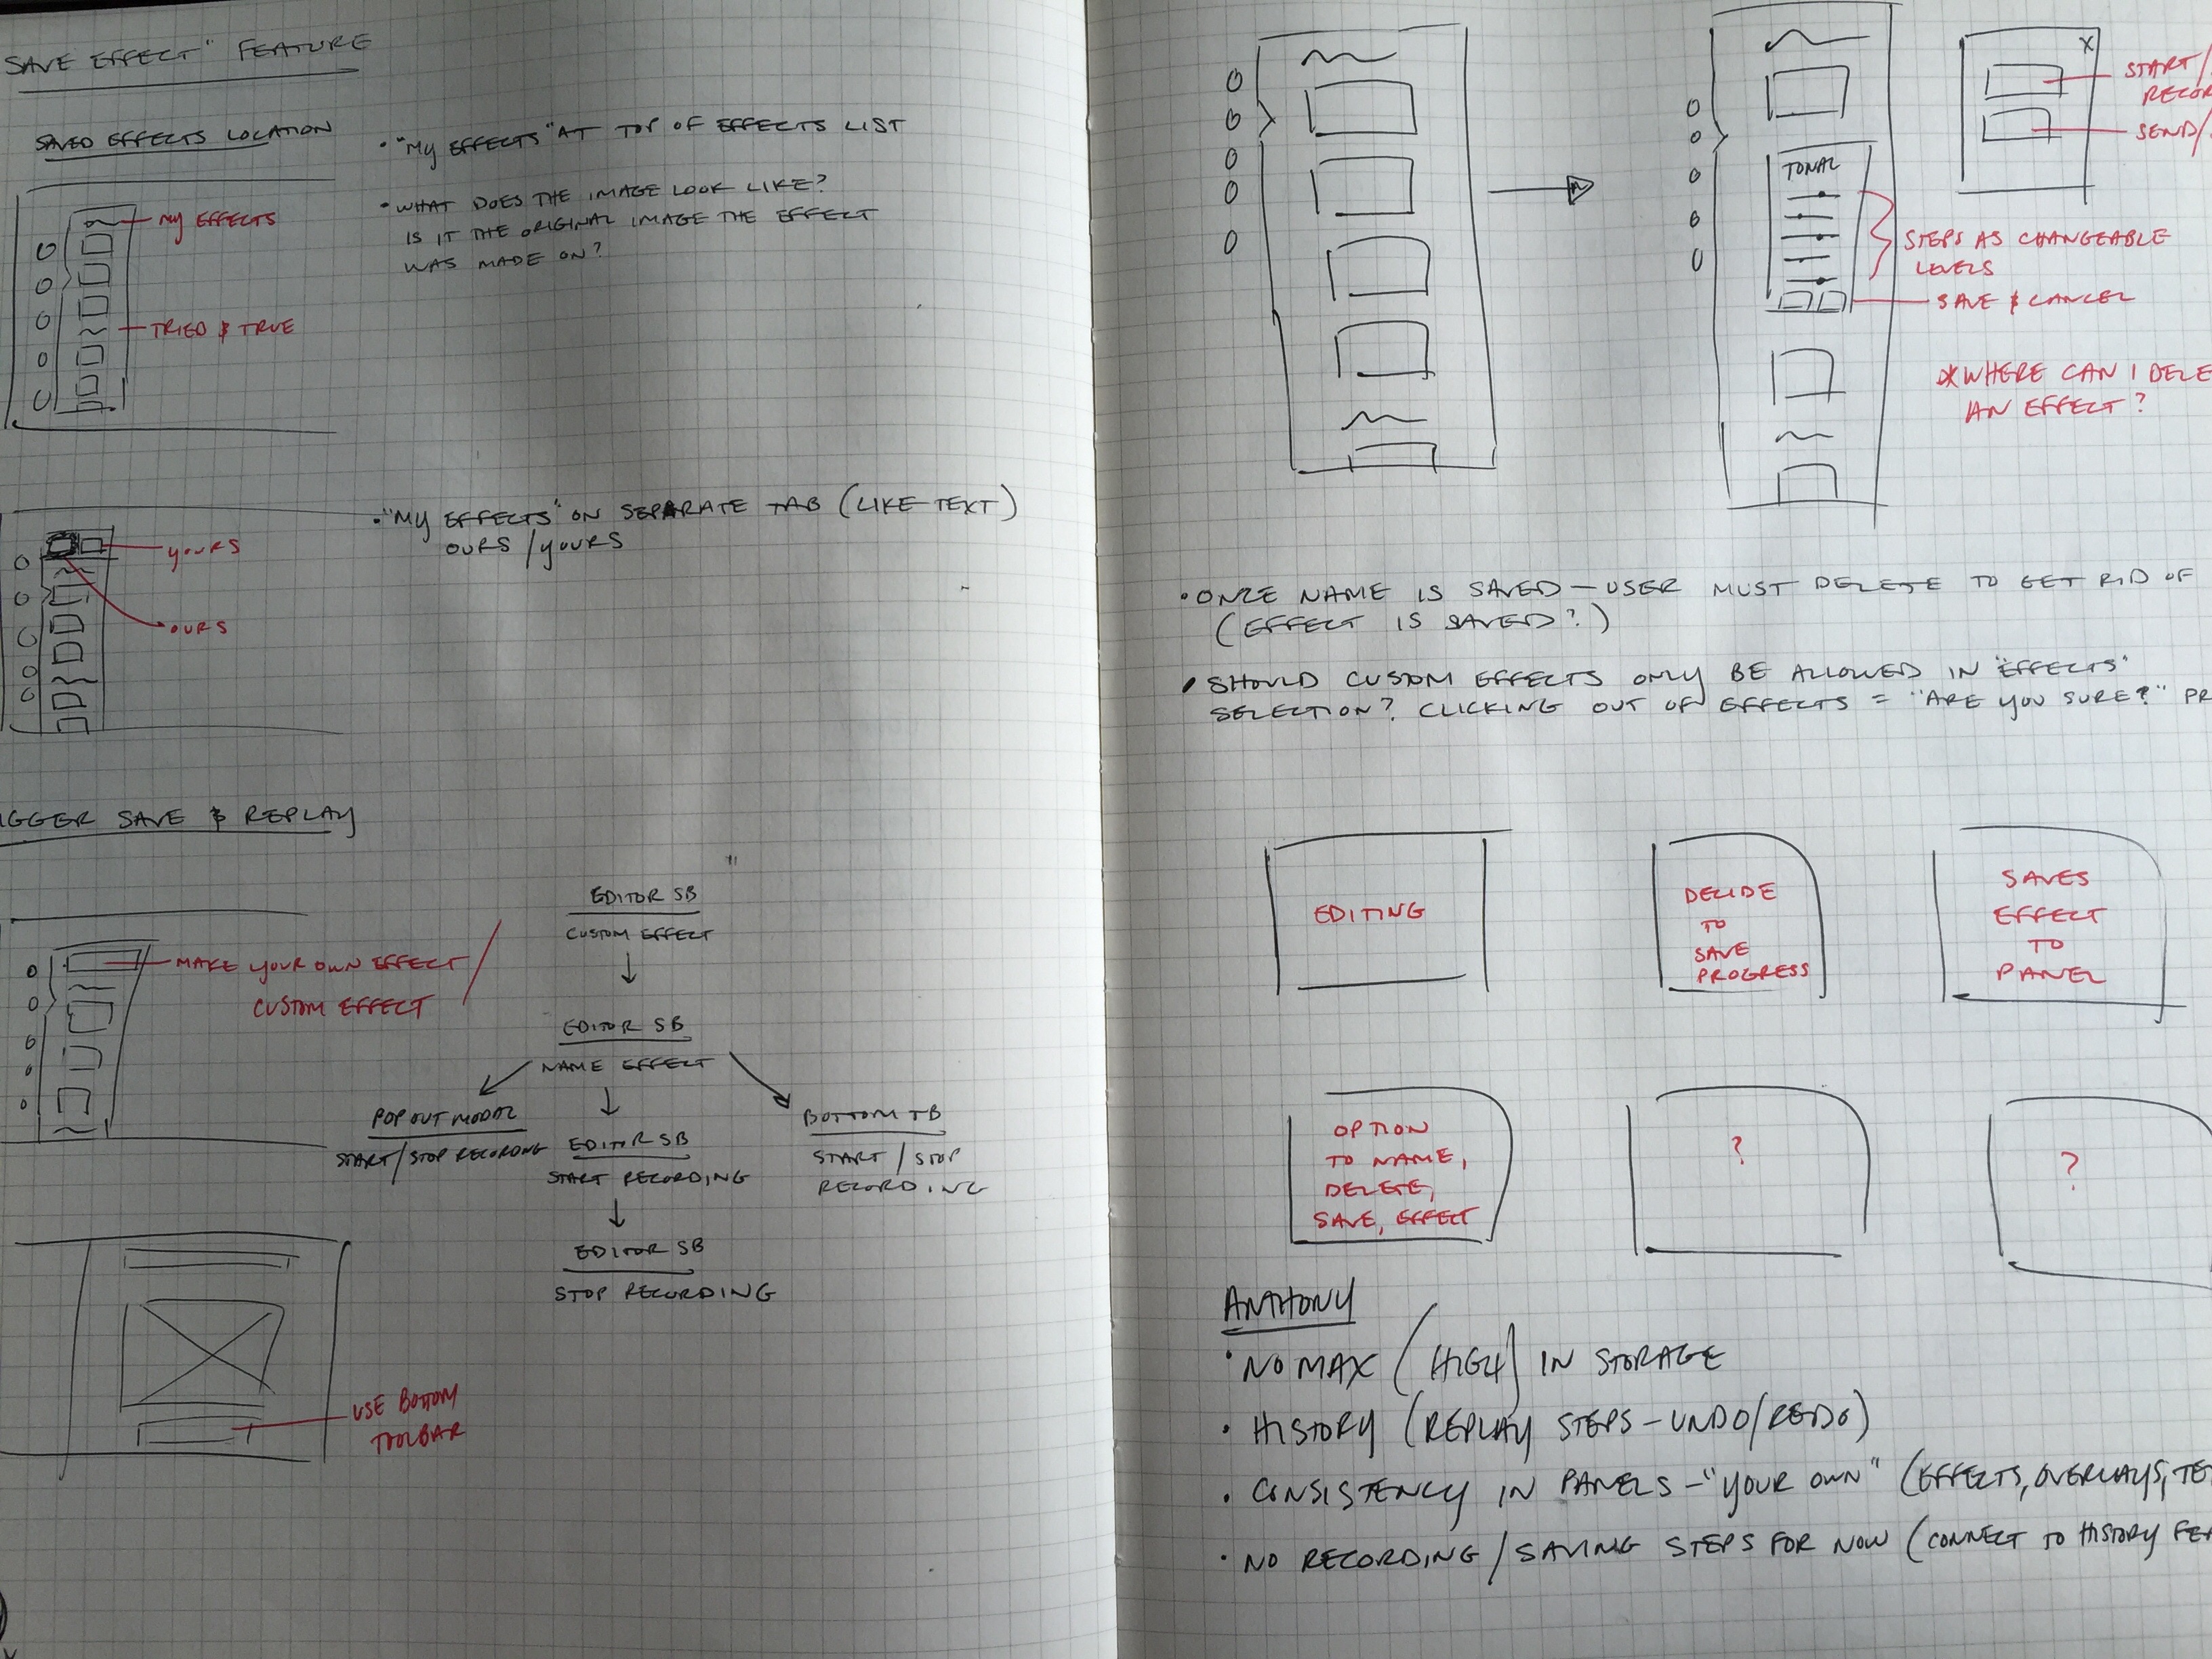 SAVE EFFECT" FEATURE
SAVED EFFECTS LOCATION
MY EFFECTS
TRIED & TRUE
• "MY EFFECTS" AT TOP OF EFFECTS LIST
• WHAT DOES THE IMAGE LOOK LIKE?
IS IT THE ORIGINAL IMAGE THE EFFECT
WAS MADE ON?
YOURS
OURS
• "MY EFFECTS" ON SEPARATE TAB (LIKE TEXT)
OURS/YOURS
IGGER SAVE & REPLAY
MAKE YOUR OWN EFFECT /
CUSTOM EFFECT
EDITOR SB
CUSTOM EFFECT
EDITOR SB
NAME EFFECT
POP OUT MODAL
START/STOP RECORDING
EDITOR SB
START RECORDING
BOTTOM TB
START/STOP
RECORDING
EDITOR SB
STOP RECORDING
USE BOTTOM
TOOLBAR
TONAL
X
START/
RECOR
SEND/
STEPS AS CHANGEABLE
LEVELS
SAVE & CANCEL
* WHERE CAN I DELE
AN EFFECT?
• ONCE NAME IS SAVED — USER MUST DELETE TO GET RID OF
(EFFECT IS SAVED?)
• SHOULD CUSTOM EFFECTS ONLY BE ALLOWED IN "EFFECTS"
SELECTION? CLICKING OUT OF EFFECTS = "ARE YOU SURE?" PR
EDITING
DECIDE
TO
SAVE
PROGRESS
SAVES
EFFECT
TO
PANEL
OPTION
TO NAME,
DELETE,
SAVE, EFFECT
?
?
ANTHONY
• NO MAX (HIGH) IN STORAGE
• HISTORY (REPLAY STEPS - UNDO/REDO)
• CONSISTENCY IN PANELS - "YOUR OWN" (EFFECTS, OVERLAYS, TE
• NO RECORDING/SAVING STEPS FOR NOW (CONNECT TO HISTORY FE